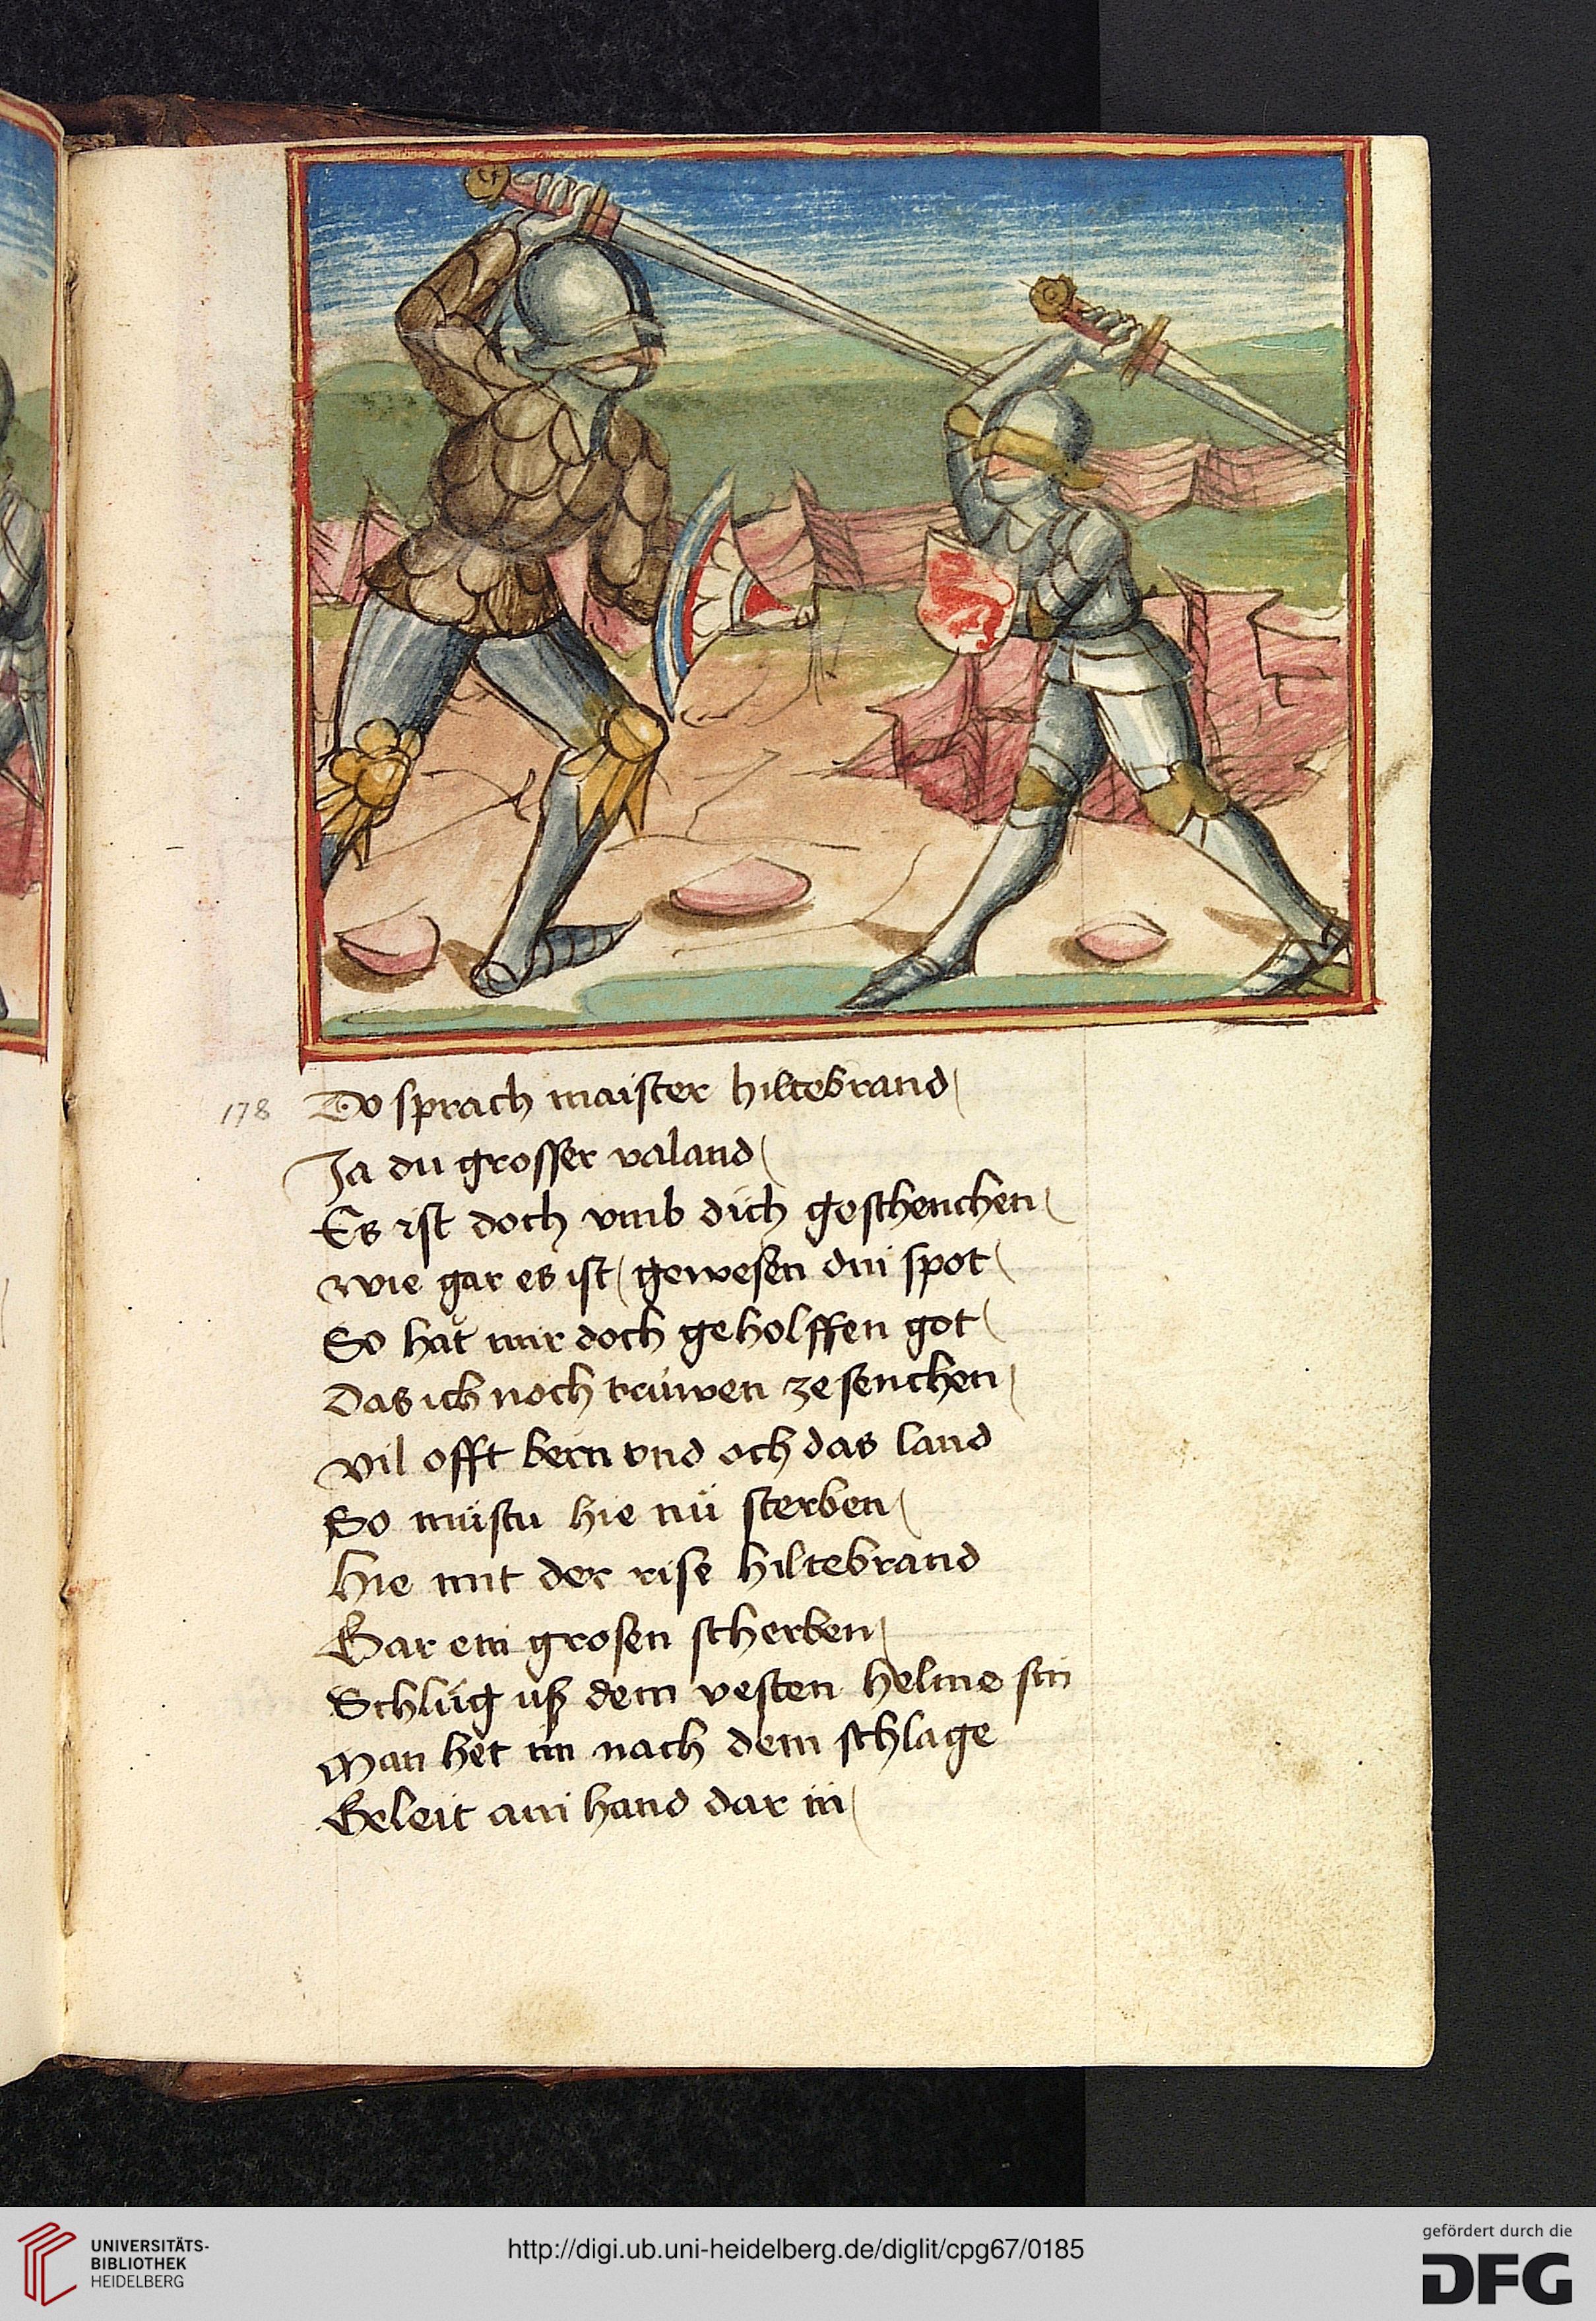 178
Do sprach maister hiltebrand
Ja du grosser valand
Es ist doch vmb dich geschenchen
wie gar es ist gewesen din spot
So hät mir doch geholffen got
Das ich noch trüwen ze senchen
vil offt bern vnd och das land
So müstu hie nü sterben
Hie mit der rise hiltebrand
Gar ein grosen scherben
Schlüg uß dem vesten helme sin
Man het im nach dem schlage
Geleit ain hand dar in
UNIVERSITÄTS-
BIBLIOTHEK
HEIDELBERG
http://digi.ub.uni-heidelberg.de/diglit/cpg67/0185
gefördert durch die
DFG